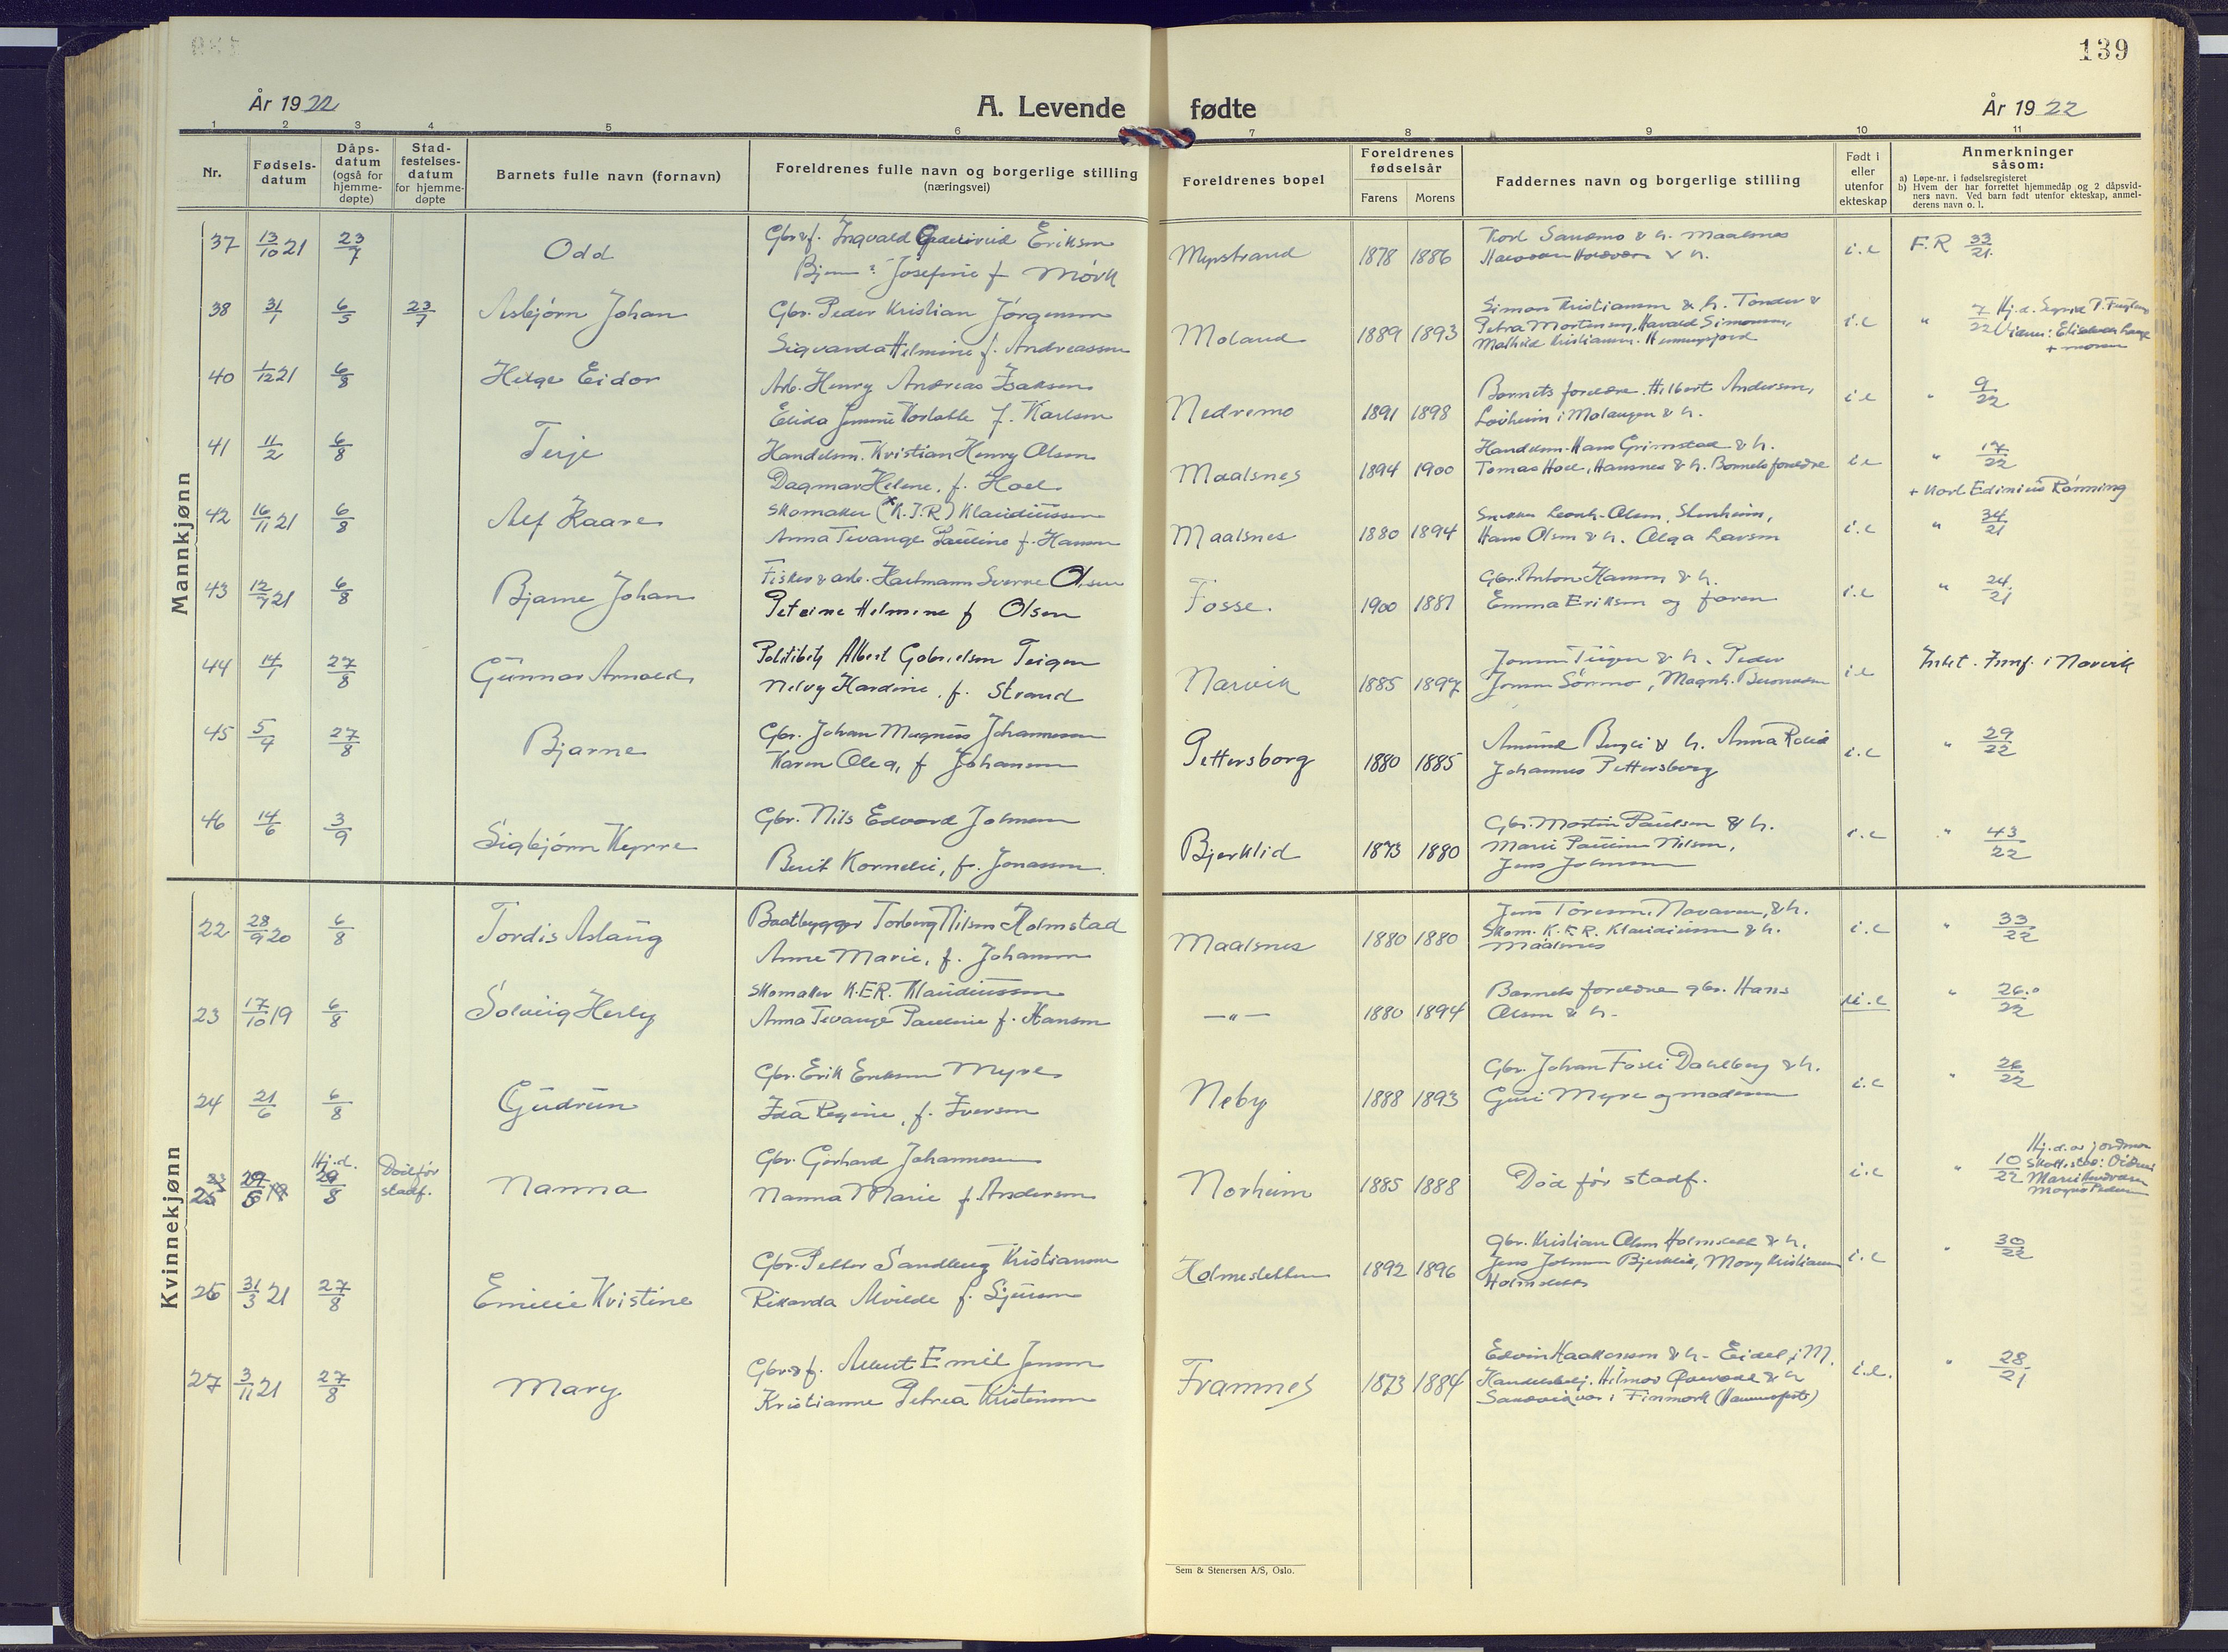 139
År 1922
A. Levende fødte
År 1922
1 2 3 4 5 6 7 8 9 10 11
Nr.
Fødsels-
datum
Dåps-
datum
(også for
hjemme-
døpte)
Stad-
festelses-
datum
for hjemme-
døpte
Barnets fulle navn (fornavn)
Foreldrenes fulle navn og borgerlige stilling
(næringsvei)
Foreldrenes bopel
Foreldrenes
fødselsår
Farens Morens
Faddernes navn og borgerlige stilling
Født i
eller
utenfor
ekteskap
Anmerkninger
såsom:
a) Løpe-nr. i fødselsregisteret
b) Hvem der har forrettet hjemmedåp og 2 dåpsvid-
ners navn. Ved barn født utenfor ekteskap, anmel-
derens navn o. l.
Mannkjønn
37 13/10 21 23/7 Odd
Gbr & f. Ingvald Eriksen
Josefine f Mørk
Myrstrand 1878 1886
Karl Sandmo & h. Maalsnes
& h.
i.e F.R 33/21
38 31/1 6/5 23/7 Asbjørn Johan
Gbr. Peder Kristian Jørgensen
Sigvarda Helmine f. Andreassen
Moland 1889 1893
Simon Kristiansen & h. Tender &
Petra Mortensen, Harald Simonsen,
Mathild Kristiansen.
i.e " 7/22 Hj.d.
+ moren
40 1/12 21 6/8 Helge Eidor
Arb. Henry Andreas Isaksen
Elida Jenine f. Karlsen
Nedremo 1891 1898
Barnets foreldre. Hilbert Andersen,
i Malangen & h.
i.e " 9/22
41 11/2 6/8 Terje
Handelsm. Kristian Henry Olsen
Dagmar Helene, f. Hoel
Maalsnes 1894 1900
Handelsm. Hans Grimstad & h.
Tomas Hoel, Hansnes & h. Barnets foreldre
i.e " 17/22
+ Karl Edinius Rønning
42 16/11 21 6/8 Alf Kaare
Skomaker (K.J.R) Klaudiussen
Anna Tevange Pauline f. Hansen
Maalsnes 1880 1894
Snekker Leonh. Olsen, Stenheim,
Hans Olsen & h. Olga Larsen
i.e " 34/21
43 12/7 21 6/8 Bjarne Johan
Fisker & arb. Hartmann Sverre Olsen
Peterine Helmine f Olsen
Fosse. 1900 1881
Gbr. Anton Hansen & h.
Emma Eriksen og faren
i.e " 24/21
44 14/7 27/8 Gunnar Arnold
Politibetj Albert Gabrielsen Teigen
Nelvy Hardine, f. Strand
Narvik 1885 1897
Jensen Teigen & h. Peder
Jensen Sørmo, Magnh.
i.e Intet. Innf. i Narvik
45 5/4 27/8 Bjarne
Gbr. Johan Magnus Johannesen
Karen Olea, f Johansen
Pettersborg 1880 1885
Amund & h. Anna
Johannes Pettersborg
i.e " 29/22
46 14/6 3/9 Sigbjørn Kyrre
Gbr. Nils Edvard Johnsen
Berit Kornelie, f. Jonassen
Bjerklid 1873 1880
Gbr. Martin Paulsen & h.
Marie Pauline Nilsen,
Jens Johnsen
i.e " 43/22
Kvinnekjønn
22 28/9 20 6/8 Tordis Aslaug
Baatbygger Torberg Nilsen Holmstad
Anne Marie, f. Johansen
Maalsnes 1880 1880
Jens Toresen, Navaren, & h.
Skom. K.E.R. Klaudiussen & h.
Maalsnes
i.e " 33/22
23 17/10 19 6/8 Solveig Herly
Skomaker K.E.R. Klaudiussen
Anna Tevange Pauline f. Hansen
—"— 1880 1894
Barnets foreldre gbr. Hans
Olsen & h.
i.e " 26/22
24 21/6 6/8 Gudrun
Gbr. Erik Eriksen Myre
Ida Regine, f. Iversen
Neby 1888 1893
Gbr. Johan Fosli Dahlberg & h.
Guri Myre og moderen
i.e " 26/22
25 Hj.d. 29/8 Død før
stadf.
Nanna
Gbr. Gerhard Johannesen
Nanna Marie f. Andersen
Norheim 1885 1888
Død før stadf.
i.e " 10/22 Hj.d. av jordmor
26 31/3 21 27/8 Emilie Kristine
Gbr. Petter Sandberg Kristiansen
Rikarda Alvilde f.
Holmesletten 1892 1896
Gbr. Kristian Olsen Holmslett & h.
Jens Johnsen Bjerklid, Mary Kristiansen
Holmslett
i.e " 30/22
27 3/11 21 27/8 Mary
Gbr. & f. Albert Emil Jensen
Kristianne Petrea Kristensen
Framnes 1873 1884
Edvin Haakonsen & h. Eidet i M.
Handelsbetj. Hilmar & h
i Finmark (Hammerfest)
i.e. " 28/21
Sem & Stenersen A/S, Oslo.